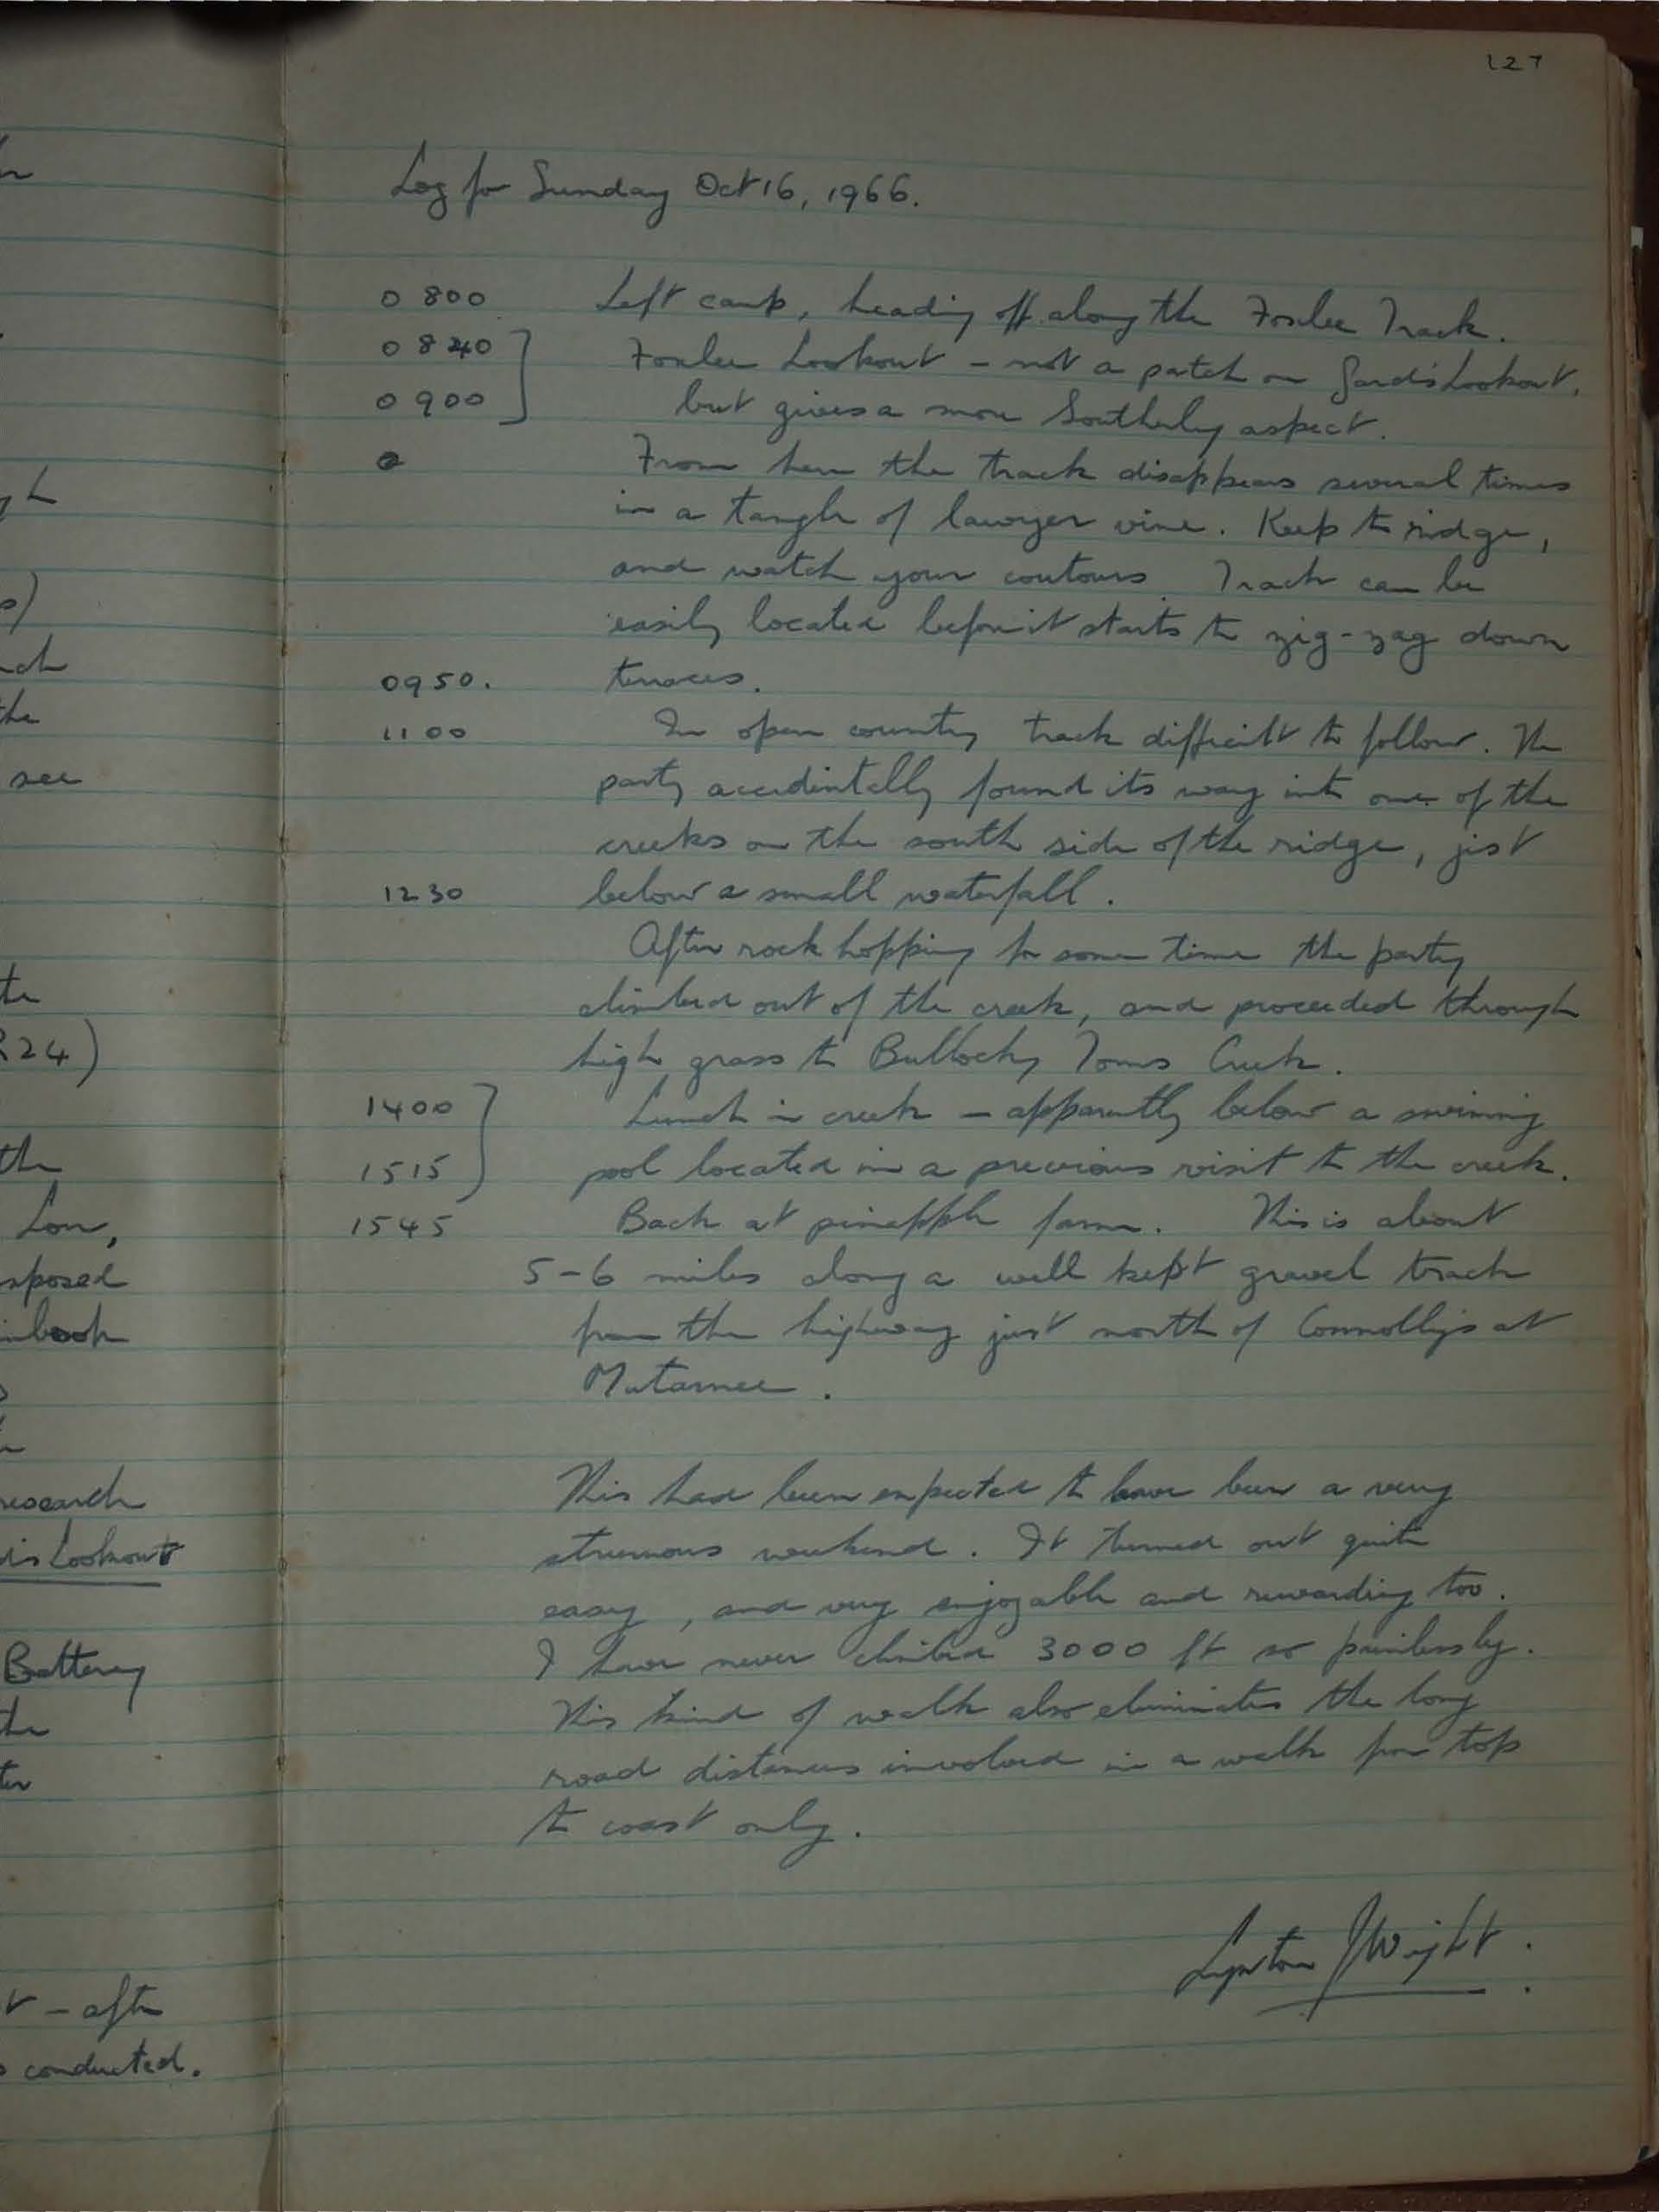 127
Log for Sunday Oct 16, 1966.
0800 Left camp, heading off along the Foxlee Track.
0840 Foxlee Lookout – not a patch on Gard's Lookout,
0900 but gives a more Southerly aspect.
From here the track disappears several times
in a tangle of lawyer vine. Keep to ridge,
and watch your contours. Track can be
easily located before it starts to zig-zag down
0950. terraces.
1100 In open country track difficult to follow. The
party accidintally found its way into one of the
creeks on the south side of the ridge, jist
1230 below a small waterfall.
After rock hopping for some time the party
climbed out of the creek, and proceeded through
high grass to Bullocky Toms Creek.
1400 Lunch in creek – apparently below a swimming
1515 pool located in a previous visit to the creek.
1545 Back at pineapple farm. This is about
5-6 miles along a well kept gravel track
from the highway just north of Connolly's at
Mutarnee.
This had been expected to have been a very
strenuous weekend. It turned out quite
easy, and very enjoyable and rewarding too.
I have never climbed 3000 ft so painlessly.
This kind of walk also eliminates the long
road distances involved in a walk from top
to coast only.
Wright.
see
224)
the
Lon,
research
Lookout
Battery
– after
conducted.